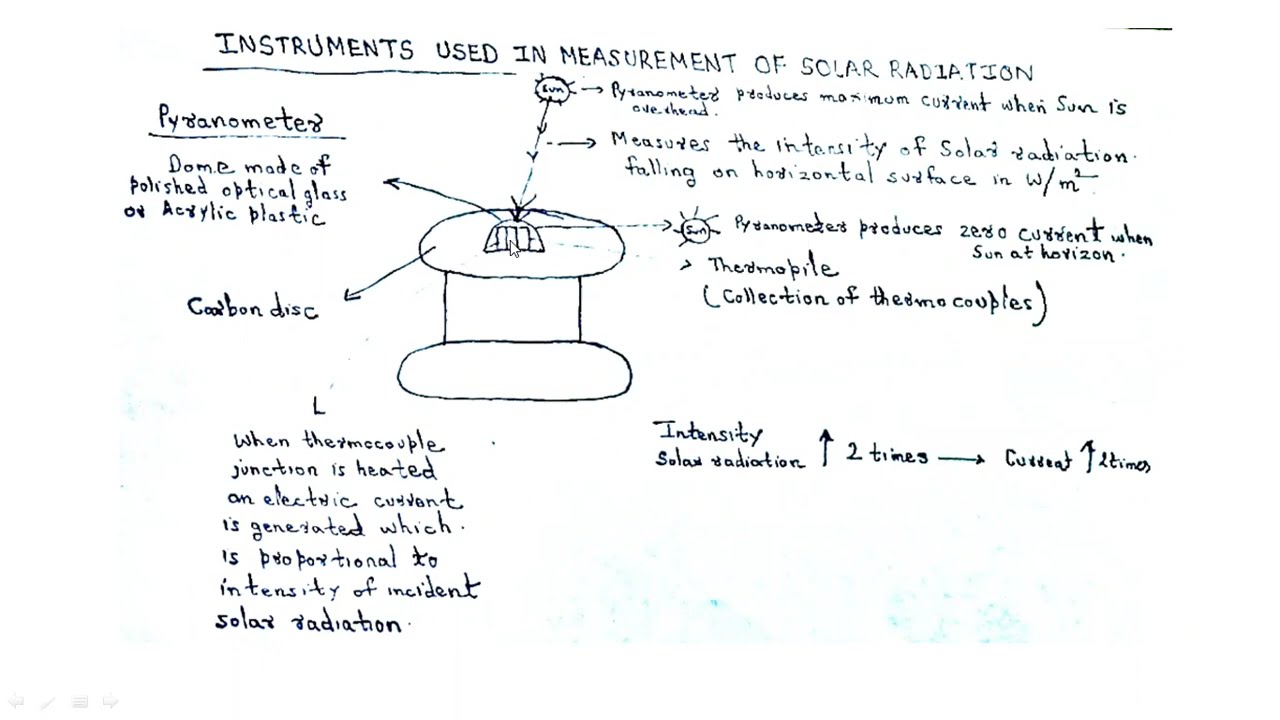 INSTRUMENTS USED IN MEASUREMENT OF SOLAR RADIATION
Pyranometer
Dome made of
polished optical glass
or Acrylic plastic
Carbon disc
Sun
Pyranometer produces maximum current when Sun is
overhead.
Measures the intensity of Solar radiation.
falling on horizontal surface in W/m²
Sun
Pyranometer produces zero current when
Sun at horizon.
Thermopile
(Collection of thermocouples)
L
When thermocouple
junction is heated
an electric current
is generated which.
is proportional to
intensity of incident
solar radiation.
Intensity
Solar radiation ↑ 2 times → Current ↑ 2times